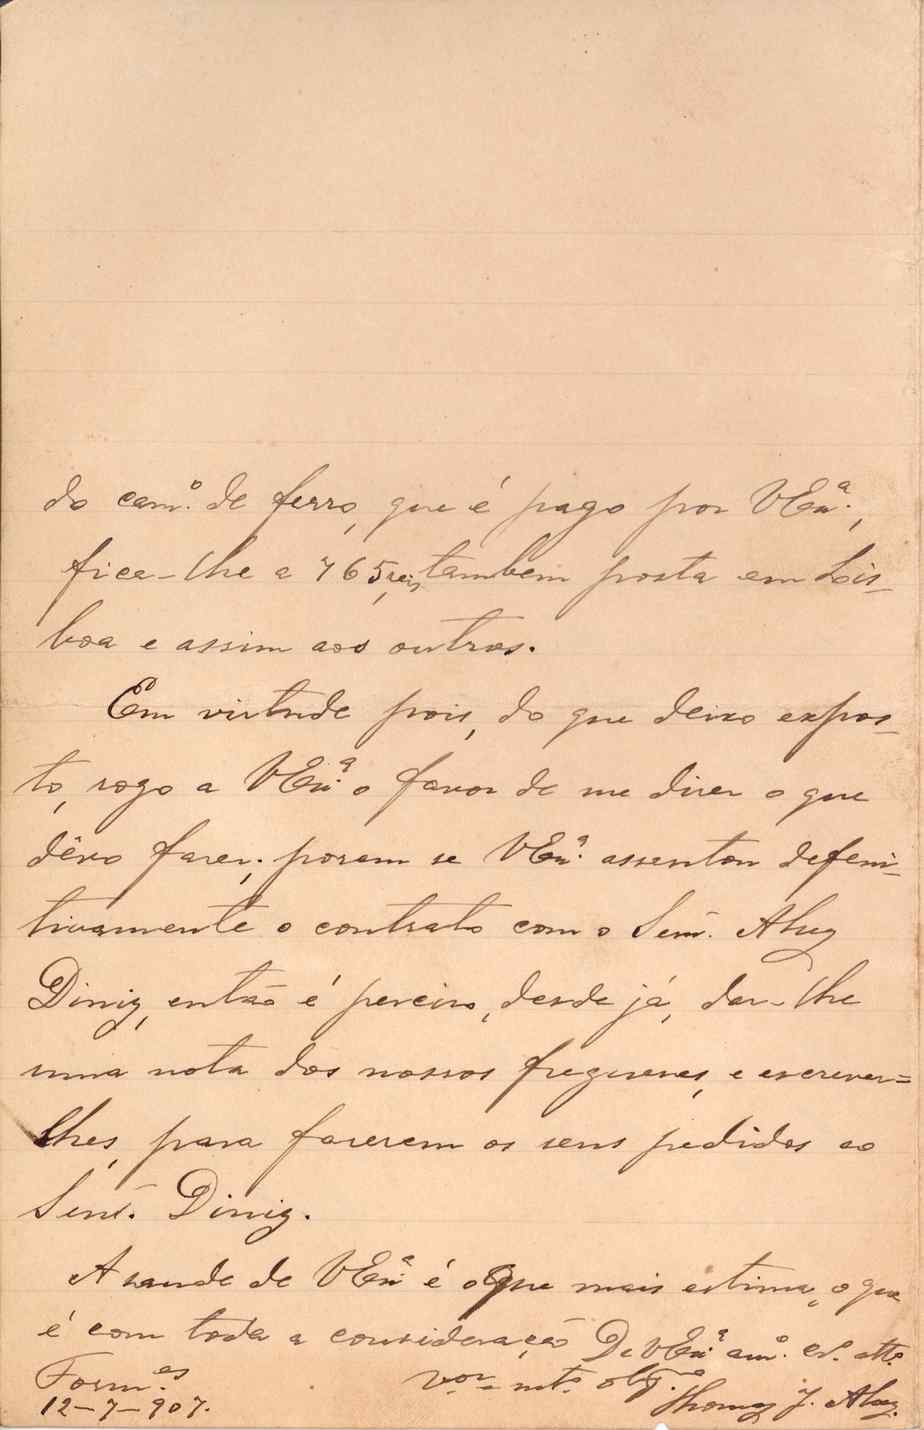 do cam.º de ferro, que é pago por VExª.,
fica-lhe a 765 reis, tambem posta em Lis-
boa e assim aos outros.
Em virtude pois, do que deixo expos-
to, rogo a VExª o favor de me dizer o que
dêvo fazer; porem se VExª. assentou defeni-
tivamente o contrato com o Senr. Alvez
Diniz, então é perciso, desde já, dar-lhe
uma nota dos nossos freguezes, e escrever-
lhes, para fazerem os seus pedidos ao
Senr. Diniz.
A saude de VExª é o que mais estima, o que
é com toda a consideração De VExª am.º cr.º att.º
Form.es vor mt.º obg.mo
12-7-907. Thomaz J. Alvez.